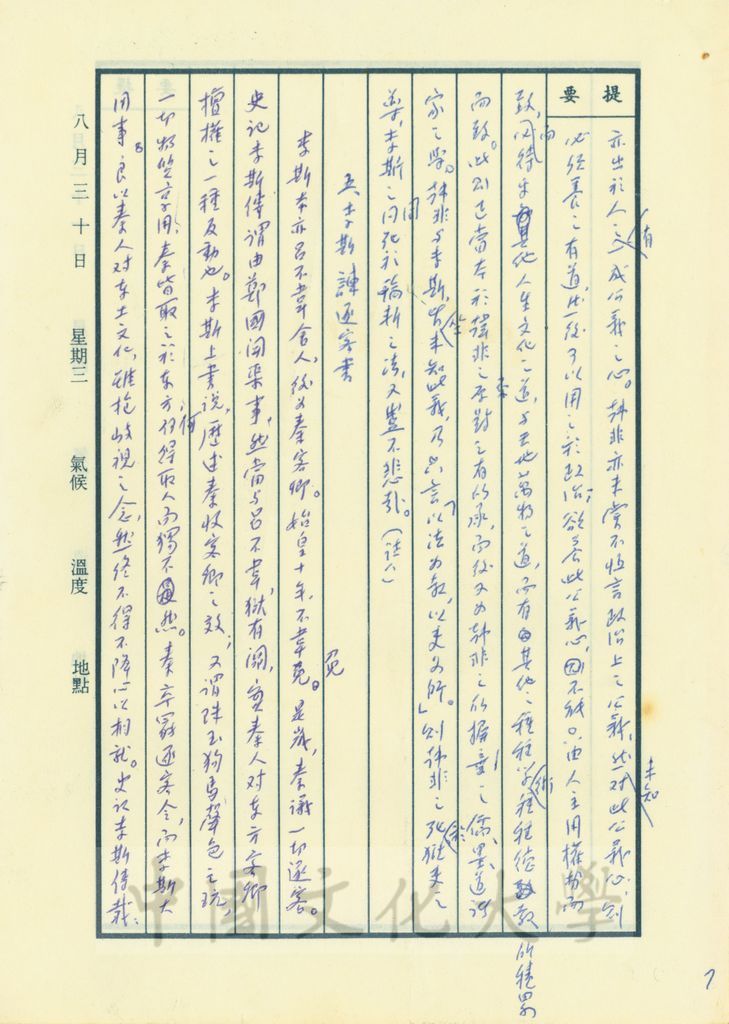 提要
亦出於人之有成公義之心。韓非亦未嘗不恆言政治上之公義,然對此公義心,則未知
必須養之有道,然後可以用之於政治。欲養此公義心,固不能由人主用權勢而
致,而待其他人生文化之道,與天地萬物之道,而有由其他之種種學術種種德教所積累
而致。此則已當本於韓非之所承,而後又為韓非之所擯棄之儒墨道諸
家之學。韓非與李斯,皆未知此義,乃只言「以法為教,以吏為師。」則韓非之死獄吏之
藥,李斯之同死於稿斬之法,又豈不悲哉。(註八)
五李斯諫逐客書
李斯本亦呂不韋舍人,後為秦客卿。始皇十年,不韋免。是歲,秦議一切逐客。
史記李斯傳謂由鄭國開渠事,然當與呂不韋獄有關,實秦人對東方客卿
擅權之一種反動也。李斯上書說,歷述秦收客卿之效;又謂珠玉狗馬聲色之玩,
一切物質享用,秦皆取之於東方,何得取人而獨不然。秦卒罷逐客令,而李斯大
用事。良以秦人對東土文化,雖抱歧視之念,然終不得不降心以相就。史記李斯傳載:
八月三十日 星期三 氣候 溫度 地點
中國文化大學
7